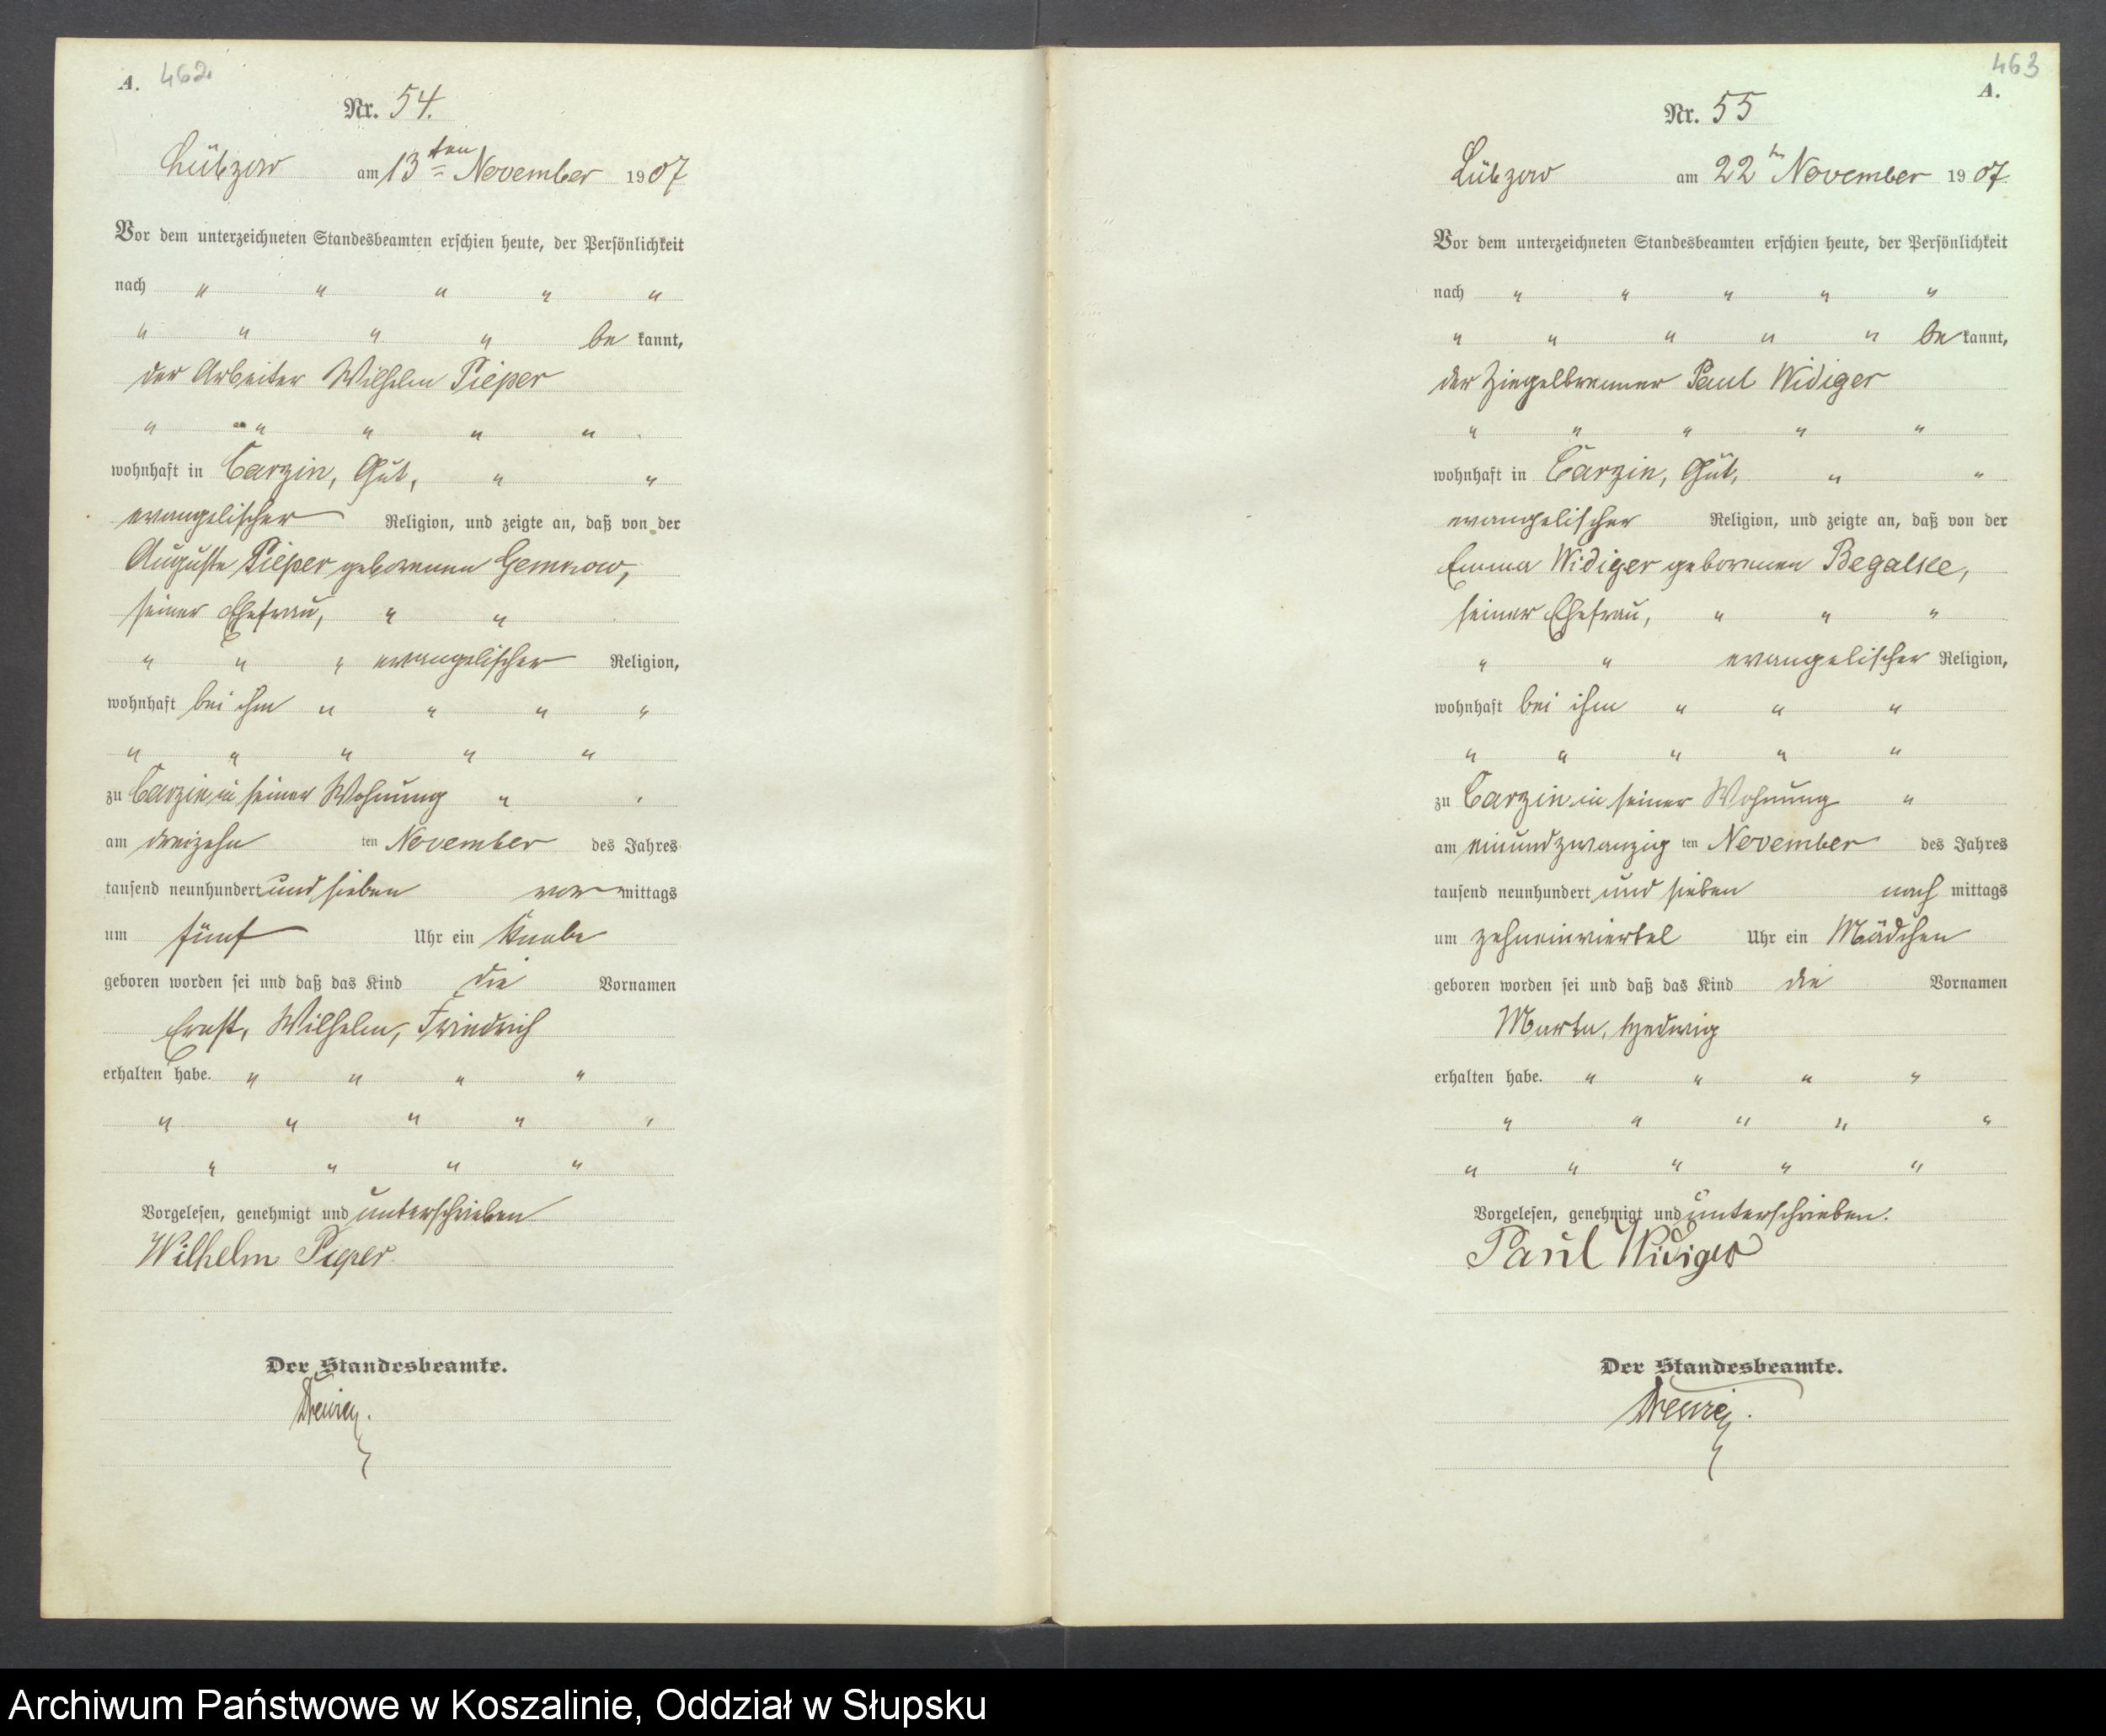 A. 462
Nr. 54.
Lübzow am 13ten November 1907
Vor dem unterzeichneten Standesbeamten erschien heute, der Persönlichkeit
nach " " " " "
" " " " be kannt,
der Arbeiter Wilhelm Pieper
" " " " "
wohnhaft in Carzin, Gut, " "
evangelischer Religion, und zeigte an, daß von der
Auguste Pieper geborenen
seiner Ehefrau, " "
" " " evangelischer Religion,
wohnhaft bei ihm " " " "
" " " " "
zu Carzin in seiner Wohnung " "
am dreizehn ten November des Jahres
tausend neunhundert und sieben vor mittags
um fünf Uhr ein Knabe
geboren worden sei und daß das Kind die Vornamen
Ernst, Wilhelm, Friedrich
erhalten habe. " " " "
" " " " "
" " " "
Vorgelesen, genehmigt und unterschrieben
Wilhelm Pieper.
Der Standesbeamte.
463
A.
Nr. 55
Lübzow am 22ten November 1907
Vor dem unterzeichneten Standesbeamten erschien heute, der Persönlichkeit
nach " " " " "
" " " " " be kannt,
der Ziegelbrenner Paul Widiger
" " " " "
wohnhaft in Carzin, Gut, " "
evangelischer Religion, und zeigte an, daß von der
Emma Widiger geborenen Begalke,
seiner Ehefrau, " " "
" " evangelischer Religion,
wohnhaft bei ihm " " "
" " " " "
zu Carzin in seiner Wohnung "
am einundzwanzig ten November des Jahres
tausend neunhundert und sieben nach mittags
um zehneinviertel Uhr ein Mädchen
geboren worden sei und daß das Kind die Vornamen
Marta, Hedwig
erhalten habe. " " " "
" " " " "
" " " " "
Vorgelesen, genehmigt und unterschrieben.
Paul Widiger
Der Standesbeamte.
Archiwum Państwowe w Koszalinie, Oddział w Słupsku